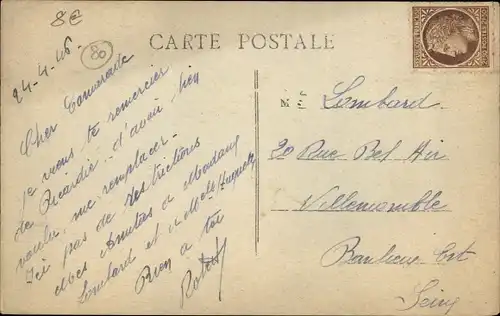 8€
80
CARTE POSTALE
24-4-46
Cher Camarade
Je viens te remercier
de Picardie, d'avoir bien
voulu me remplacer.
Ici pas de restrictions
Mes Amitiés à Madame
Lombard et à Melle Huguette
Bien à toi
M
Lombard.
20 Rue Bel Air
Villemomble
Banlieue Est
Seine